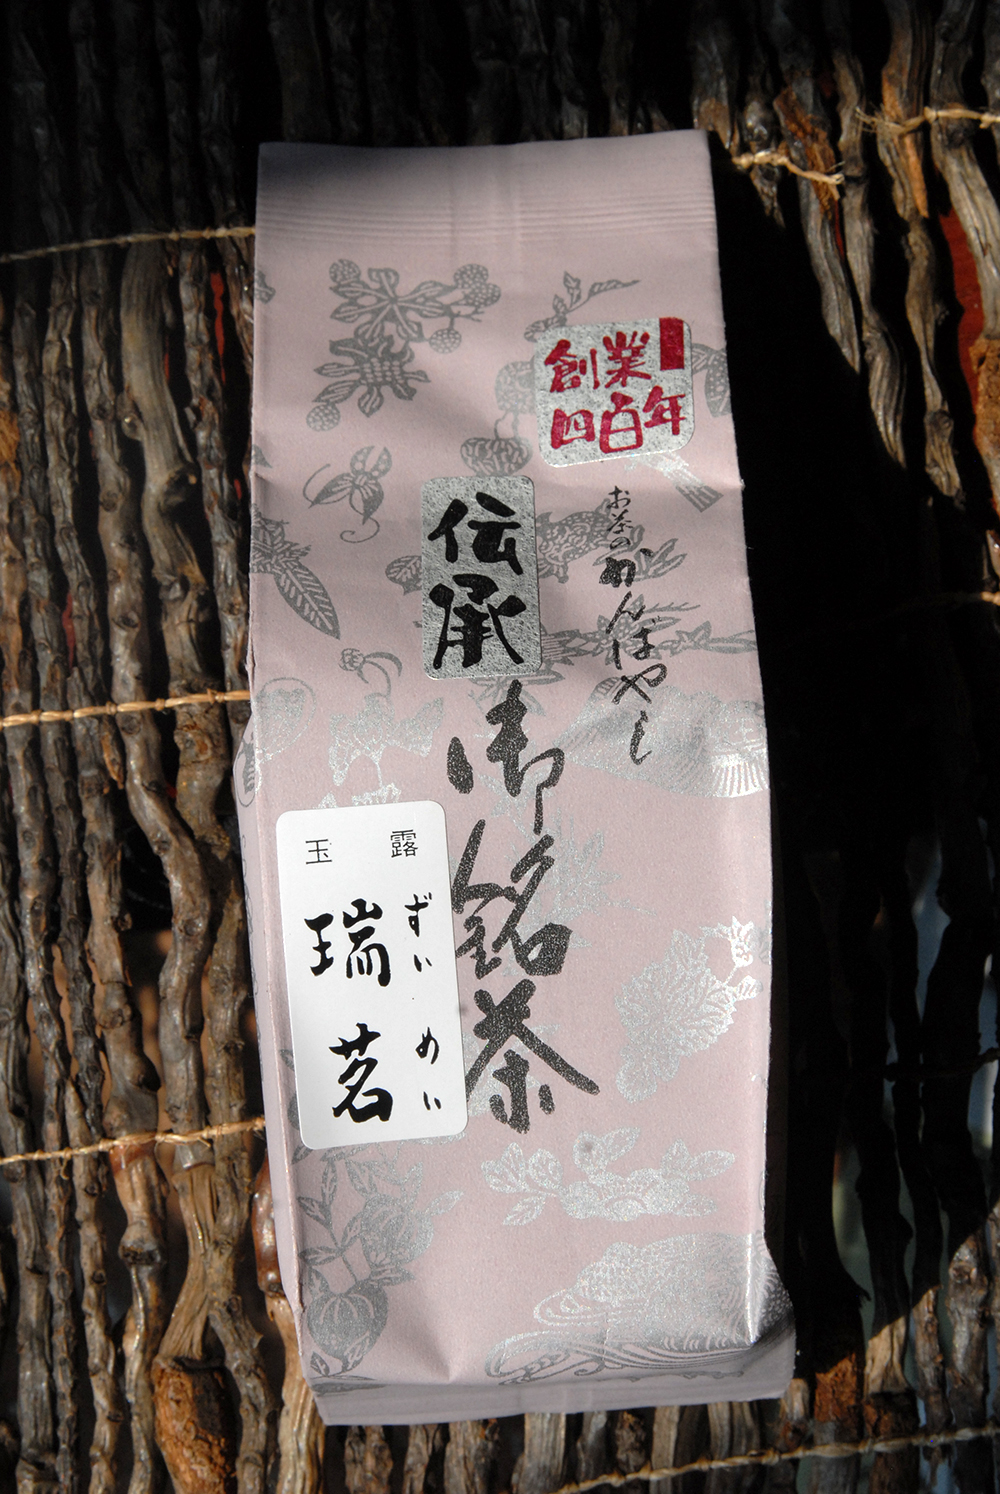 創業
四百年
お茶の かんばやし
伝承
御銘茶
玉露
ずいめい
瑞茗